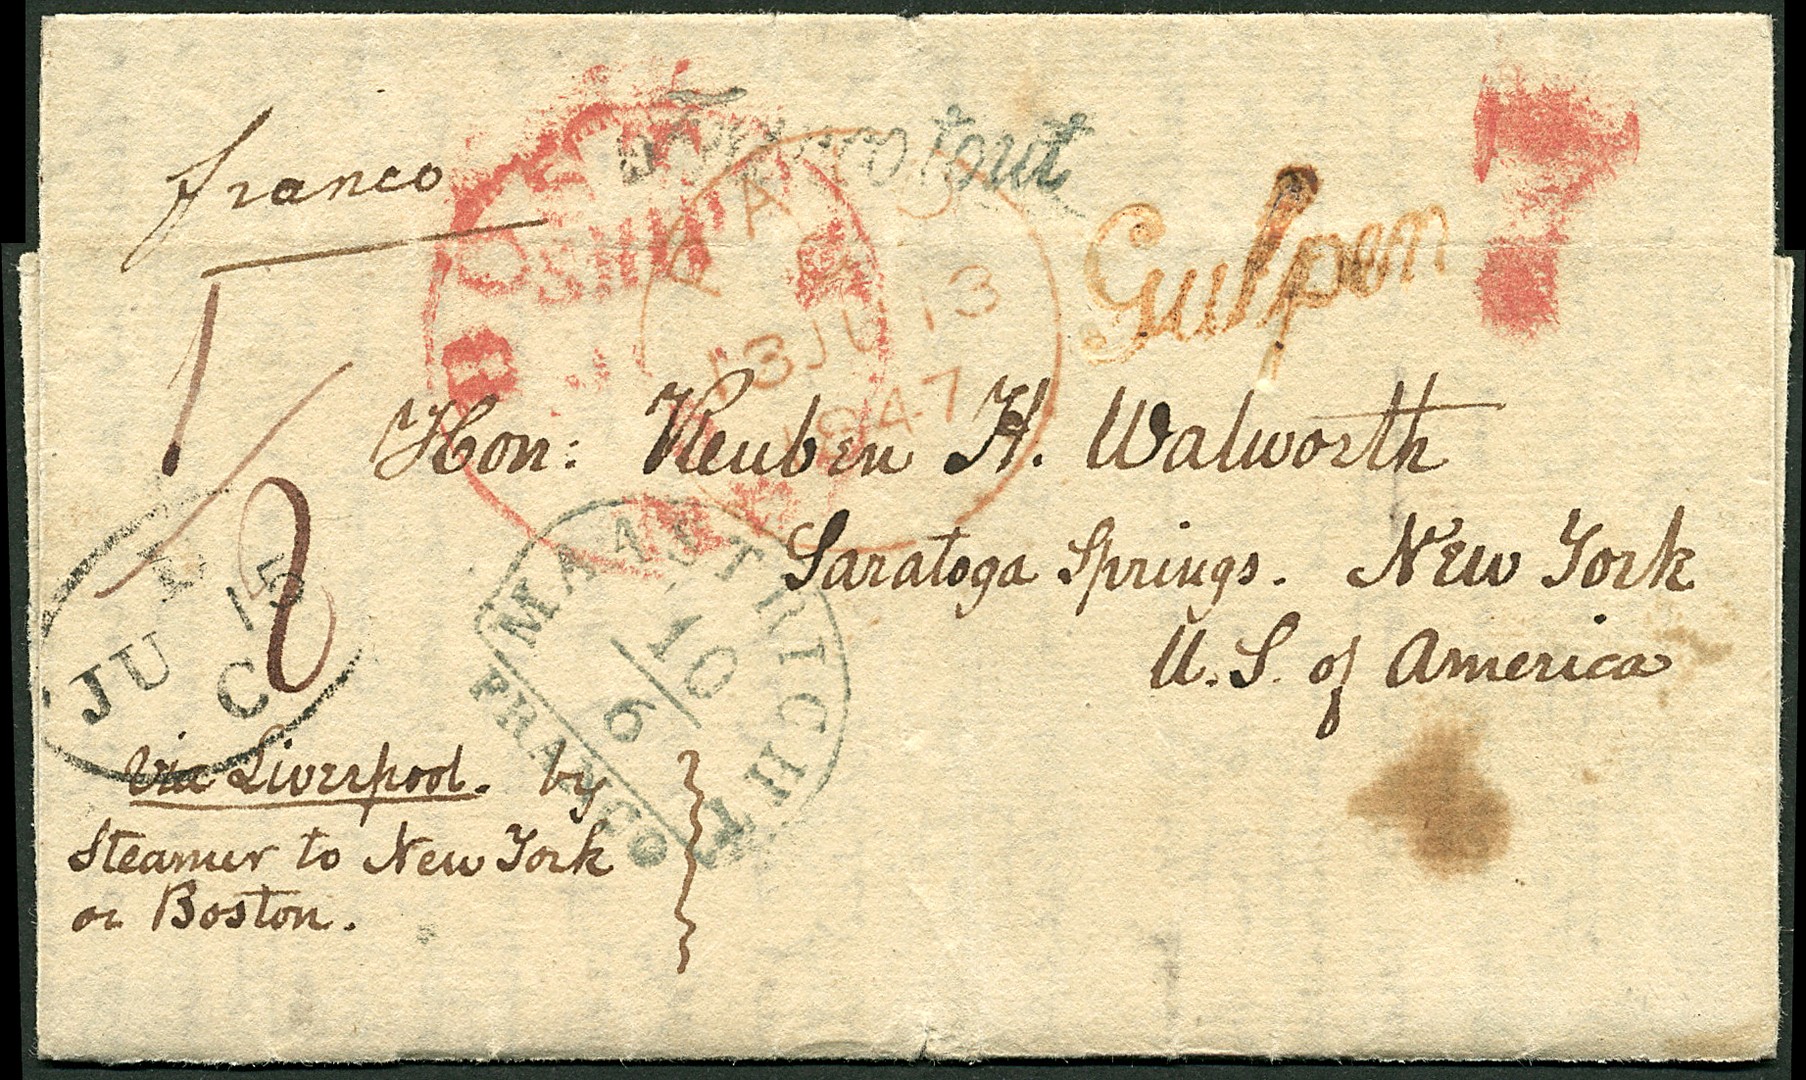 franco
BOSTON
SHIP
PAID
13 JU 13
1847
Gulpen
7
1/8
Hon: Reuben H. Walworth
Saratoga Springs. New York
U.S. of America
L
JU 15
C
MAASTRICHT
10
6
FRANCO
via Liverpool. by
Steamer to New York
or Boston.